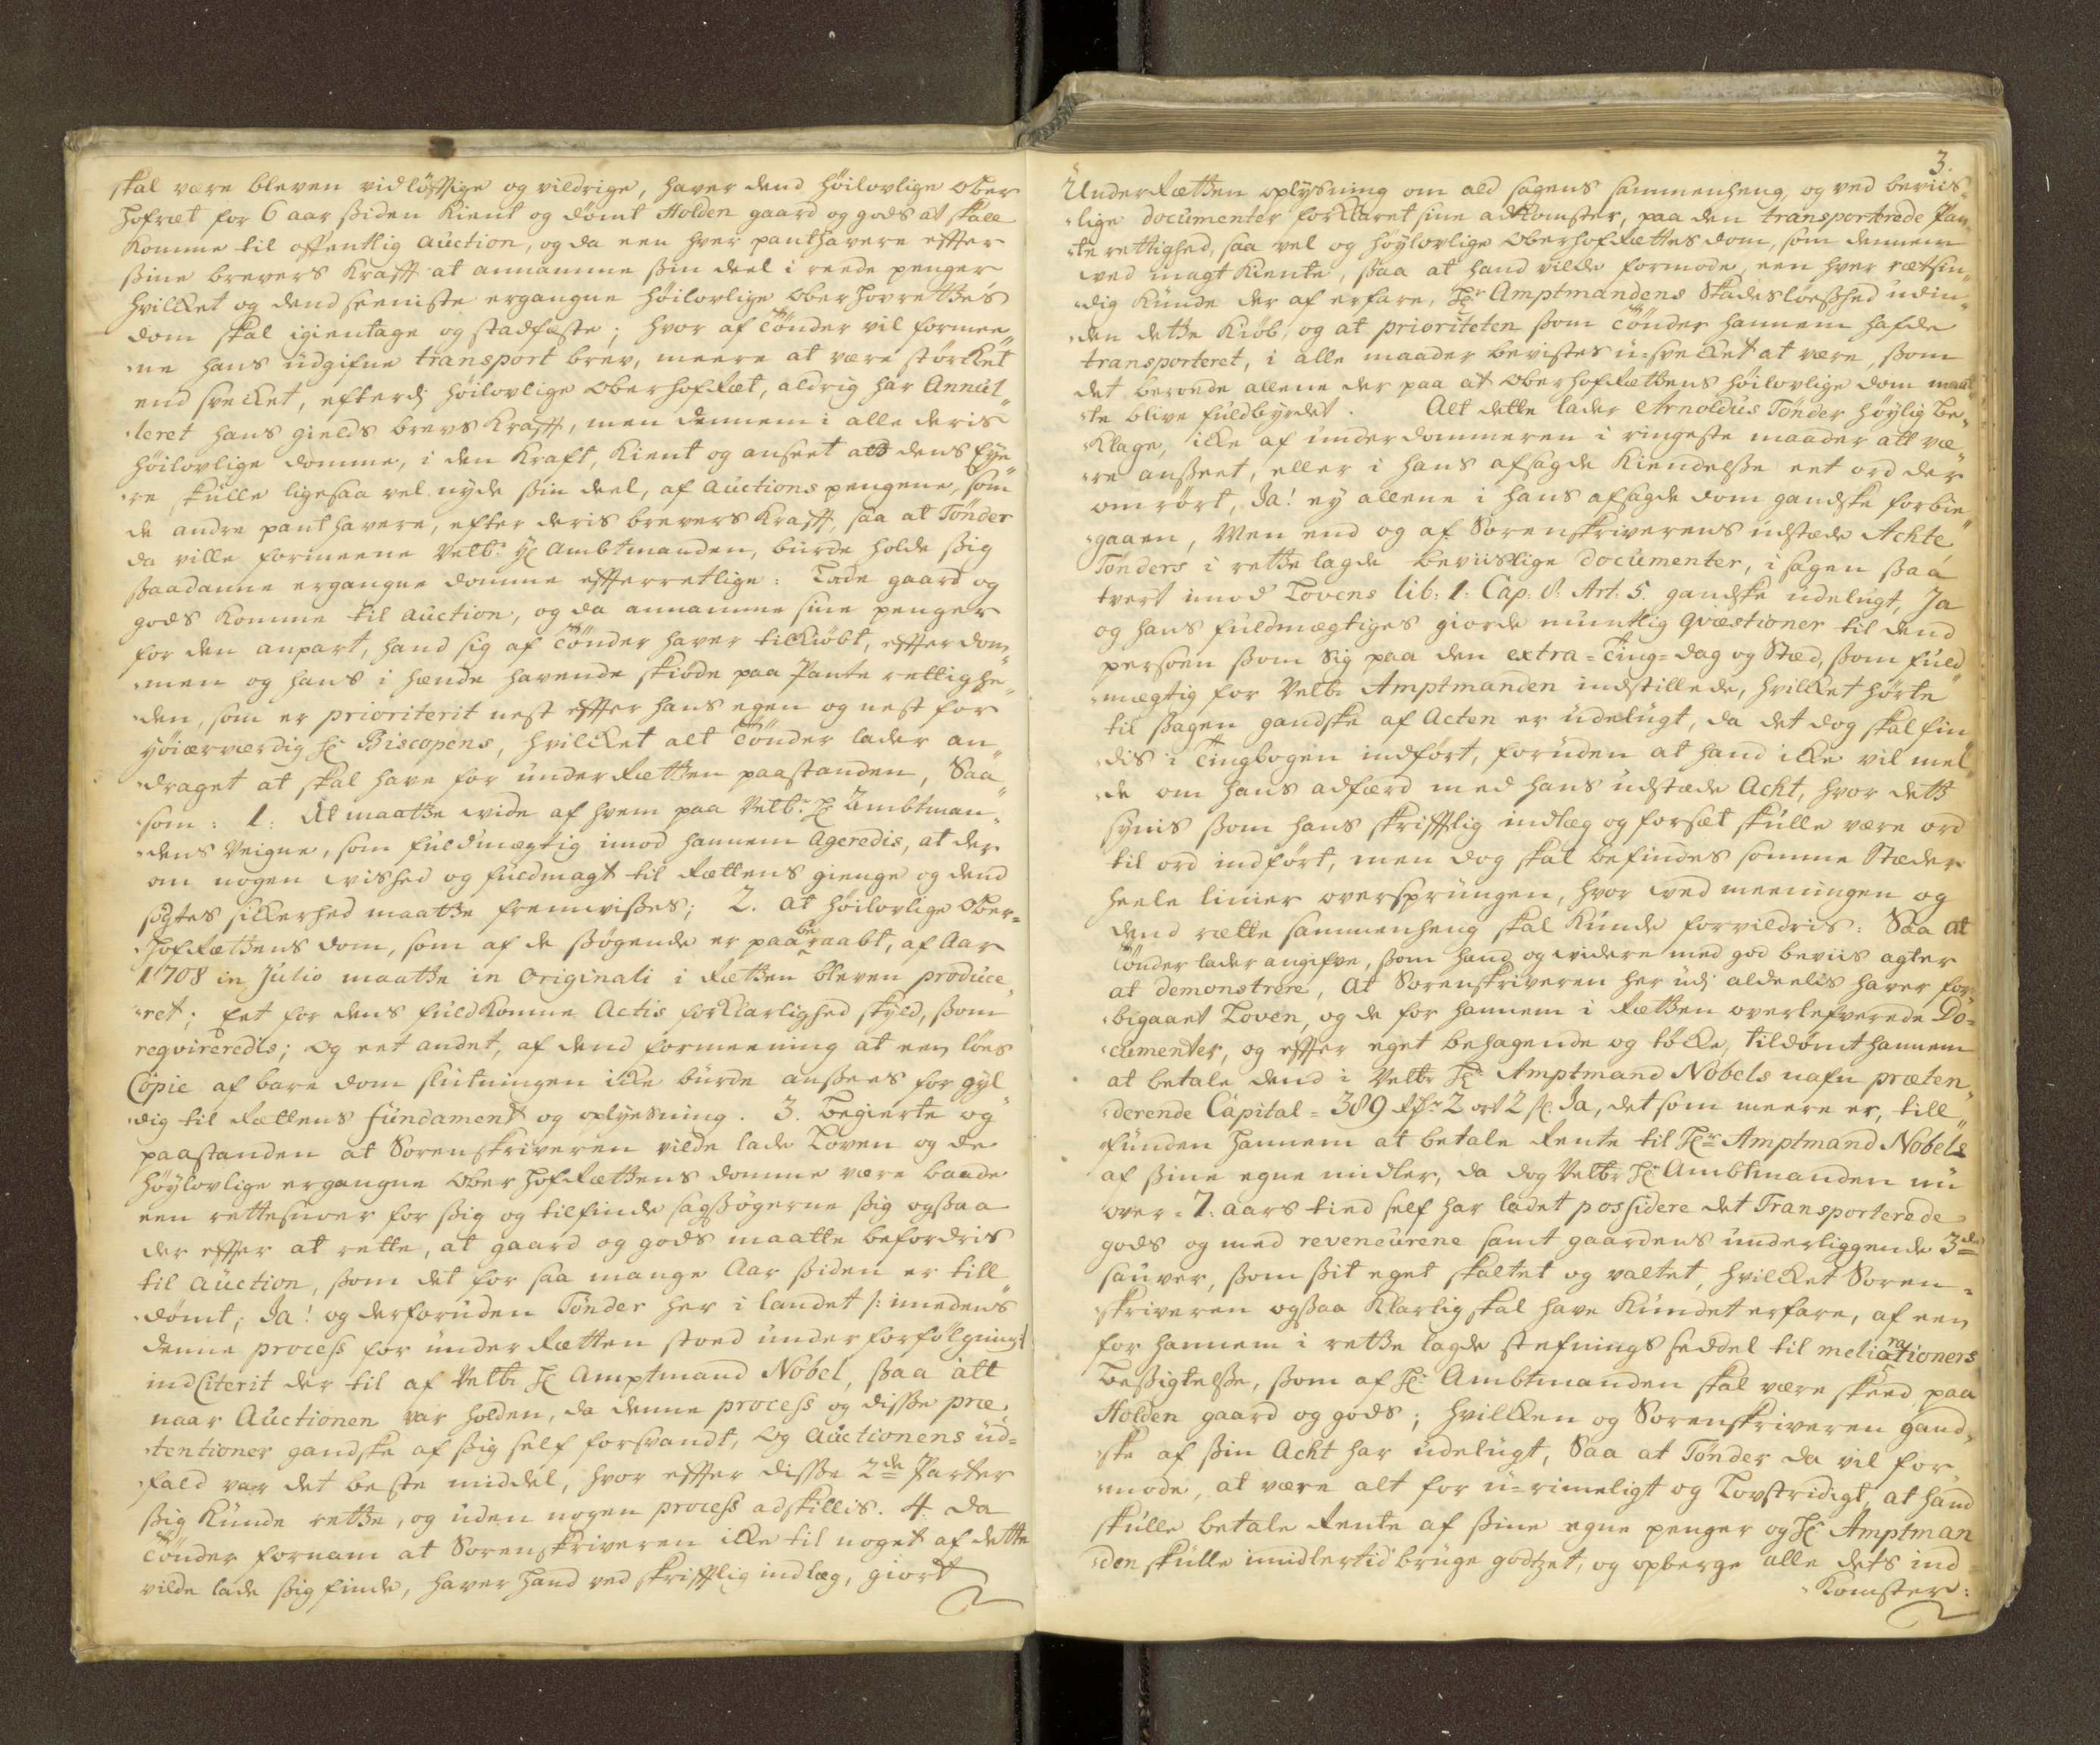 skal være bleven vidløfftige og vildrige, haver dend høilovlige ober
hofræt for 6 aar ßiden kient og dömt Holden gaard og gods at skall
komme til offentlig auction, og da een hver panthavere effter
ßine brevers Krafft at annamme ßin deel i reede penger
hvilcket og dend seeniste ergangne høilovlige ober Hovrettes
dom skal igientage og stadfæste; hvor af Tönder vil formee„
„ne hans udgifne transport brev, meere at være störcket
end svecket, efterdj høilovlige OberhofRæt, aldrig har Annul„
„leret hans gields brevs Krafft, men dennem i alle deris
høilovlige domme, i den Kraft, kient og anseet at dens Eye„
„re skulle ligesaa vel nyde ßin deel, af auctions pengene, som
de andre pant havere, efter deris brevers Krafft, saa at Tönder
da ville formeene Velbr: Hr ambtmanden, burde holde ßig
ßaadanne ergangne domme effterretlige: Lade gaard og
gods komme til auction, og da annamme sine penger
for den anpart, hand sig af Tönder haver tilkiöbt, effter dom„
„men og hans i hænde havende skiöde paa Pante rettighe„
„den, som er prioriterit nest effter hans egen og nest for
Høiærværdig Hr Biscopens, hvilcket alt Tönder lader an„
„draget at skal have for underRætten paastanden, Saa
„som: 1: At maatte vide af hvem paa Velbr: Hr Ambtman„
„dens Veigne, som fuldmægtig imod hannem Ageredis, at der
om nogen vished og fuldmagt til Rættens gienge og dend
ßögtes sickerhed maatte fremvißes; 2. at høilovlige Ober=
HofRættens dom, som af de ßögende er paaberaabt, af Aar
1708 in Julio maatte in Originali i Rætten bleven produce„
„ret; Eet for dens fuldkomne Actis forklarlighed skyld, ßom
reqvireredis; og eet andet, af dend formeening at een löes
Copie af bare dom slutningen icke burde anßees for gyl
„dig til Rættens fundament og oplyesning. 3. begierte og
paastanden at Sorenskriveren vilde lade Loven og de
høylovlige ergangne ober HofRættens domme være baade
een rettesnoer for ßig og tilfinde sagßögerne ßig ogßaa
der effter at rette, at gaard og gods maatte befordris
til Auction, ßom det for saa mange Aar ßiden er till„
„dömt; Ja! og derforuden Tönder her i landet /: imedens
denne process for underRætten stoed under forfölgning:/
indciterit der til af Velbr Hr Amptmand Nobel, ßaa att
naar Auctionen var holden, da denne process og diße præ„
„tentioner gandske af ßig self forsvandt, og Auctionens ud=
„fald var det beste middel, hvor effter diße 2de Parter
ßig kunde rette, og uden nogen process adskillis. 4. da
Tönder fornam at Sorenskriveren icke til noget af dette
vilde lade ßig finde, haver Hand ved skrifftlig indlæg, giort
3.
UnderRætten oplysning om ald sagens sammenheng, og ved beviis„
„lige documenter forklaret sine adkomster, paa den transporterede Pan„
„te rettighed, saa vel og høylovlige OberhofRættes dom, som dennem
ved magt kiente, ßaa at hand vilde formode, een hver retsin„
„dig kunde der af erfare, Hr: Amptmandens Skadeslöeßhed udin„
„den dette Kiöb, og at prioriteten ßom Tönder hannem hafde
transporteret, i alle maader bevistes u=svecket at være, ßom
det beroede allene der paa at OberhofRættens høilovlige dom maat„
„te blive fuldbyrdet. Alt dette lader Arnoldus Tönder høylig be„
„klage, icke af underdommeren i ringeste maader att væ„
„re anßeet, eller i hans afsagde kiendelße eet ord der
om rört, Ja! ey allene i hans afsagde dom gandske forbie„
„gaaen, Men end og af Sorenskriverens udstæde Achte,
Tönders i rette lagde beviislige documenter, i sagen ßaa
tvert imod Lovens lib: 1: Cap: 8: Art: 5. gandske udelugt, Ja
og hans fuldmægtiges giorde muntlig Qvæstioner til dend
person ßom sig paa den extra=Ting=dag og Stæd, ßom fuld„
„mægtig for Velbr Amptmanden indstillede, hvilcket hörte
til ßagen gandske af Acten er udelugt, da det dog skal fin„
„dis i Tingbogen indfört, foruden at hand icke vil mel„
„de om hans adfærd med hans udstæde Acht, hvor dett
synis ßom hans skrifftlig indlæg og forsæt skulle være ord
til ord indfört, men dog skal befindes somme Stæder
heele linier oversprungen, hvor ved meeningen og
dend rætte sammenheng skal kunde forvildris: Saa at
Tönder lader angifve, ßom hand og videre med god beviis agter
at demonstrere, At Sorenskriveren her udj aldeelis haver for„
„bigaaet Loven, og de for hannem i Rætten overlefverede Do=
„cumenter, og effter eget behagende og töcke, tildömt hannem
at betale dend i Velbr Hr: Amptmand Nobels nafn præten„
„derende Capital = 389 Rdr 2 ort 2 s: Ja, det som meere er, till„
„funden Hannem at betale Rente til Hr: Amptmand Nobels
af ßine egne midler, da dog Velbr Hr: Ambtmanden nu
over 7: aars tied self har ladet possidere det Transporterede
gods og med reveneurene samt gaardens underliggende 3de
sauver, ßom ßit eget skaltet og valtet, hvilcket Soren=
„skriveren ogßaa klarlig skal have kundet erfare, af een
for hannem i rette lagde stefnings seddel til meliorationers
Beßigtelße, ßom af Hr: Ambtmanden skal være skeed paa
Holden gaard og gods; Hvilcken og Sorenskriveren gand„
„ske af ßin Acht har udelugt, Saa at Tönder da vil for„
„mode, at være alt for u=rimeligt og Lovstridigt, at hand
skulle betale Rente af ßine egne penger og Hr: Amptman„
„den skulle imidlertid bruge godtzet, og opberge alle dets ind„
„komster: